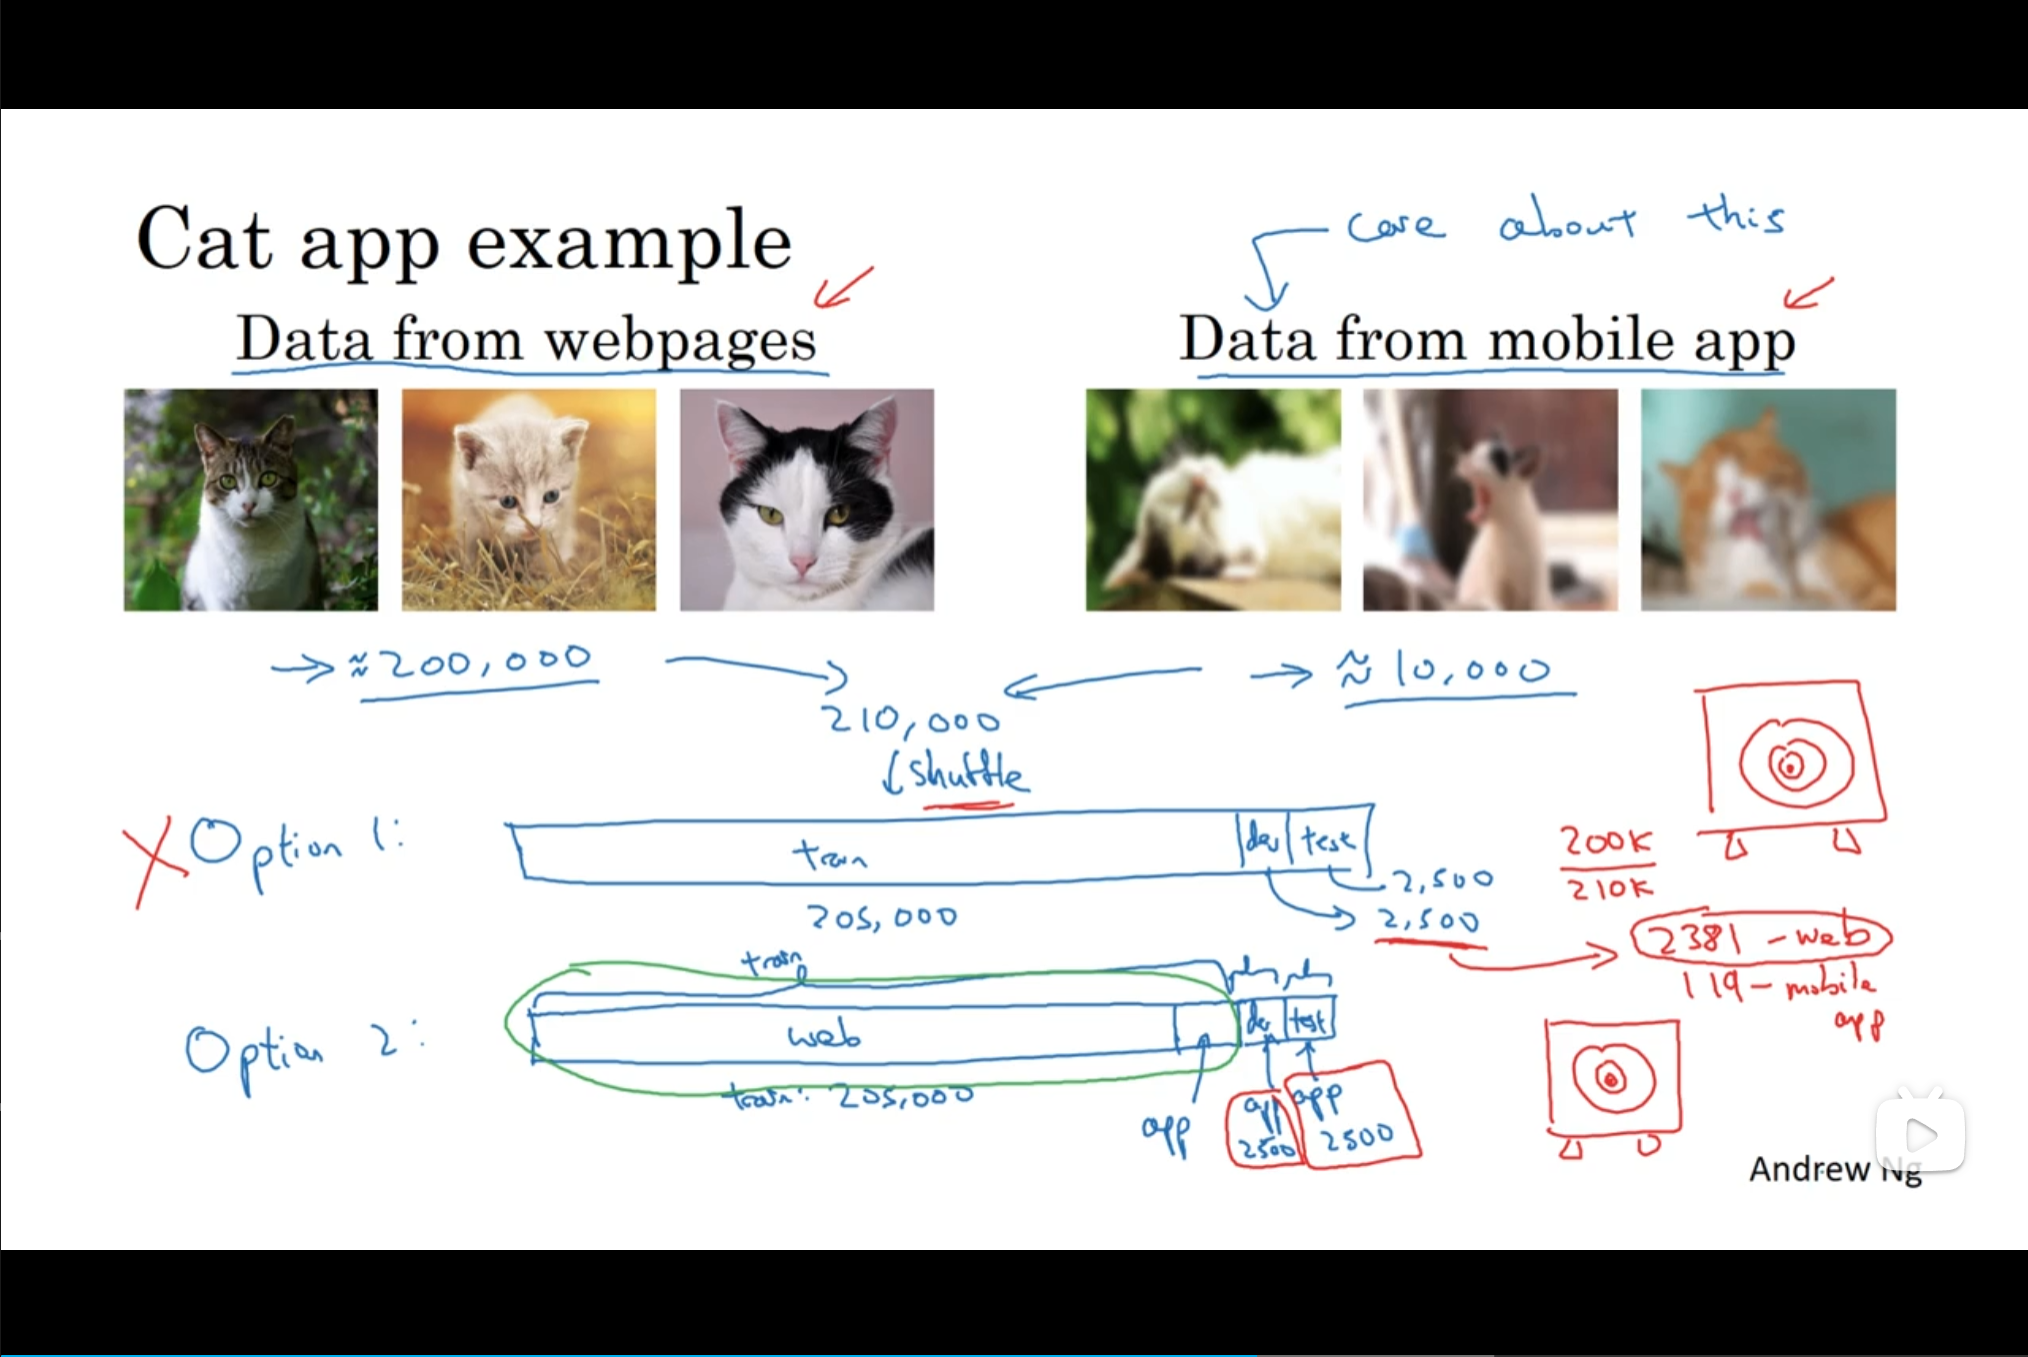 Cat app example
care about this
Data from webpages
Data from mobile app
≈ 200,000
≈ 10,000
210,000
shuffle
Option 1:
train
dev
test
2,500
2,500
205,000
200K
210K
2381 - web
119 - mobile
app
train
Option 2:
web
dev
test
train: 205,000
app
app
2500
app
2500
Andrew Ng